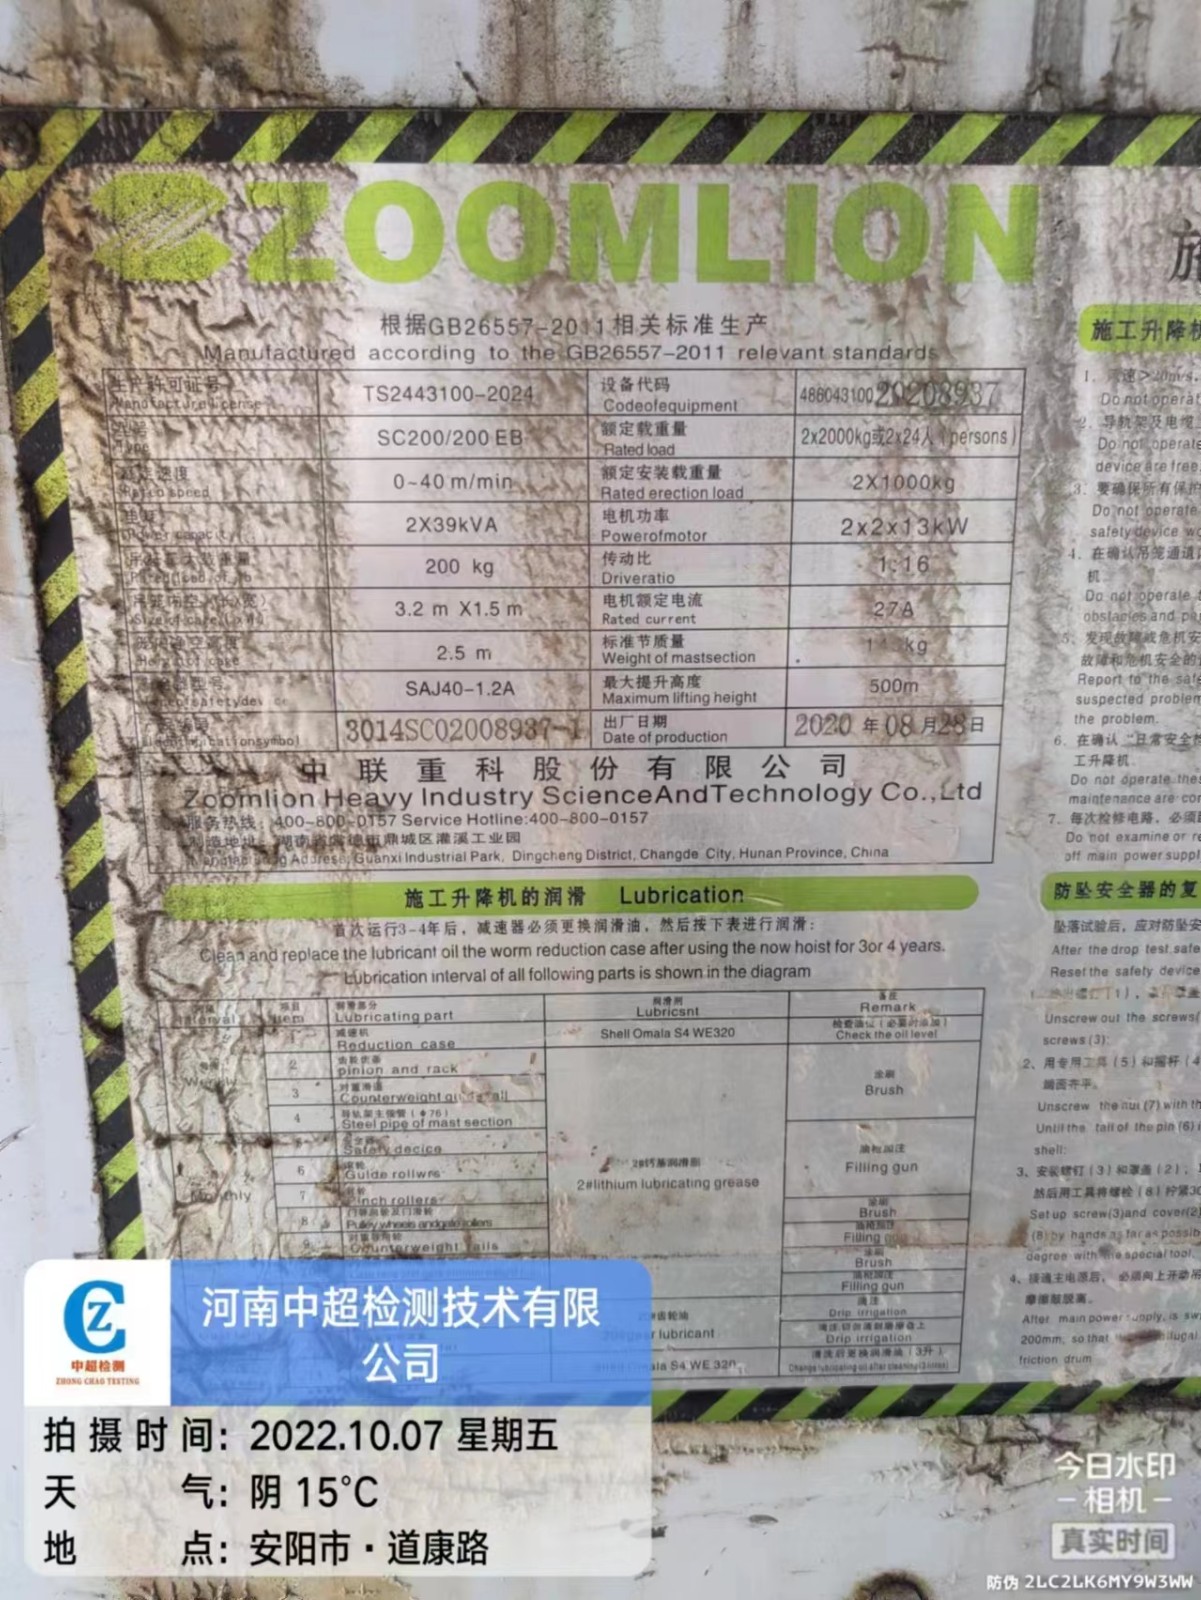 ZOOMLION
根据GB26557-2011相关标准生产
Manufactured according to the GB26557-2011 relevant standards
生产许可证号 TS2443100-2024 设备代码 48604310020208937
Manufacture license Codeofequipment
型号 SC200/200 EB 额定载重量 2x2000kg或2x24人(persons)
Type Rated load
额定速度 0~40 m/min 额定安装载重量 2X1000kg
Rated speed Rated erection load
2X39kVA 电机功率 2x2x13kW
Power capacity Powerofmotor
200 kg 传动比 1:16
Driveratio
3.2 m X1.5 m 电机额定电流 27A
Rated current
2.5 m 标准节质量 kg
Weight of mastsection
SAJ40-1.2A 最大提升高度 500m
Maximum lifting height
3014SC02008937-1 出厂日期 2020 年 08 月 28 日
Date of production
中联重科股份有限公司
Zoomlion Heavy Industry ScienceAndTechnology Co.,Ltd
服务热线：400-800-0157 Service Hotline:400-800-0157
制造地址：湖南省常德市鼎城区灌溪工业园
Manufacturing Address: Guanxi Industrial Park, Dingcheng District, Changde City, Hunan Province, China
施工升降机的润滑 Lubrication
首次运行3-4年后，减速器必须更换润滑油，然后按下表进行润滑：
Clean and replace the lubricant oil the worm reduction case after using the now hoist for 3or 4 years.
Lubrication interval of all following parts is shown in the diagram
项目 润滑部分 润滑剂 备注
Interval Item Lubricating part Lubricsnt Remark
1 减速机 Shell Omala S4 WE320 检查油位（必要时添加）
Reduction case Check the oil level
Weekly 2 pinion and rack 涂刷
3 对重滑道 Brush
Counterweight
4 导轨架主弦管（Φ76）
Steel pipe of mast section
5 Safety decice 油枪加注
6 滚轮 2#锂基润滑脂 Filling gun
Guide rollwrs 2#lithium lubricating grease
Monthly 7 Pinch rollers 涂刷
Brush
8 门
Pulley wheels andgate rollers 油枪加注
Filling gun
9 对重导向轮 涂刷
Counterweight Brush
油枪加注
Filling gun
齿轮油 滴注
lubricant Drip irrigation
Drip irrigation
Omala S4 WE 320 清洗后更换润滑油（3升）
Change lubricating oil after cleaning
施工升降机
1.
Do not operat
2. 导轨架及电缆
Do not operate
device are free.
3. 要确保所有保护
Do not operate
safety device wo
4. 在确认吊笼通道
机.
Do not operate t
obstacles and
5. 发现故障或危机安
故障和危机安全的
Report to the safe
suspected problem
the problem.
6. 在确认“日常安全
工升降机.
Do not operate thes
maintenance are con
7. 每次检修电路，必须
Do not examine or re
off main power suppl
防坠安全器的复
坠落试验后，应对防坠安
After the drop test.safe
Reset the safety device
Unscrew out the screws(
screws (3);
2、用专用工具（5）和摇杆（4
端面齐平。
Unscrew the nut (7) with th
Until the tail of the pin (6) i
shell:
3、安装螺钉（3）和罩盖（2），
然后用工具将螺栓（8）拧紧30
Set up screw(3)and cover(2)
(8) by hand as far as possib
degree with the special tool.
4、接通主电源后，必须向上开动吊
摩擦鼓脱离。
After main power supply, is sw
200mm, so that
friction drum
CZ
中超检测
ZHONG CHAO TESTING
河南中超检测技术有限
公司
拍摄时间：2022.10.07 星期五
天气：阴 15°C
地点：安阳市·道康路
今日水印
相机
真实时间
防伪 2LC2LK6MY9W3WW